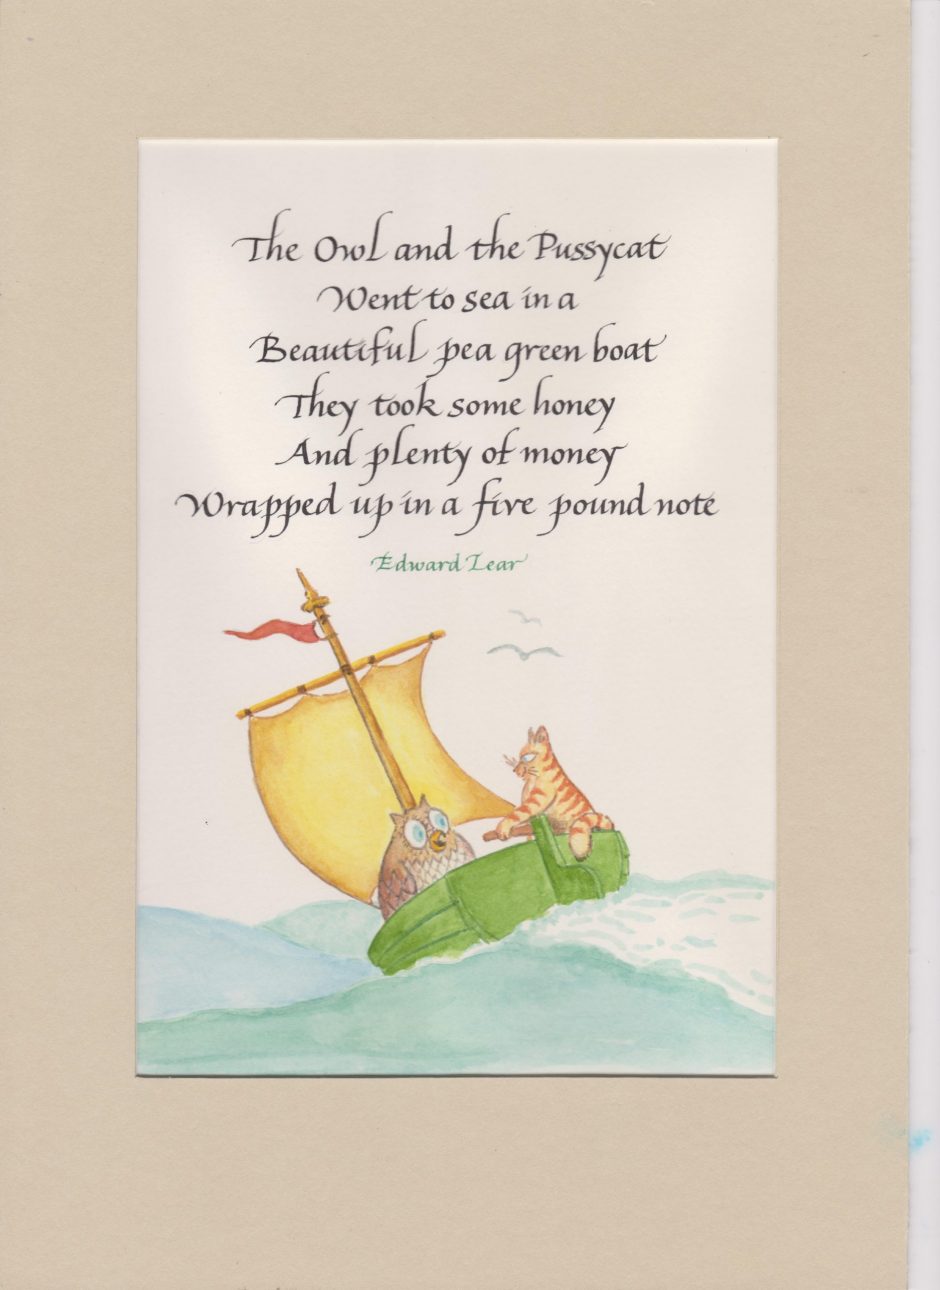 The Owl and the Pussycat
Went to sea in a
Beautiful pea green boat
They took some honey
And plenty of money
Wrapped up in a five pound note
Edward Lear